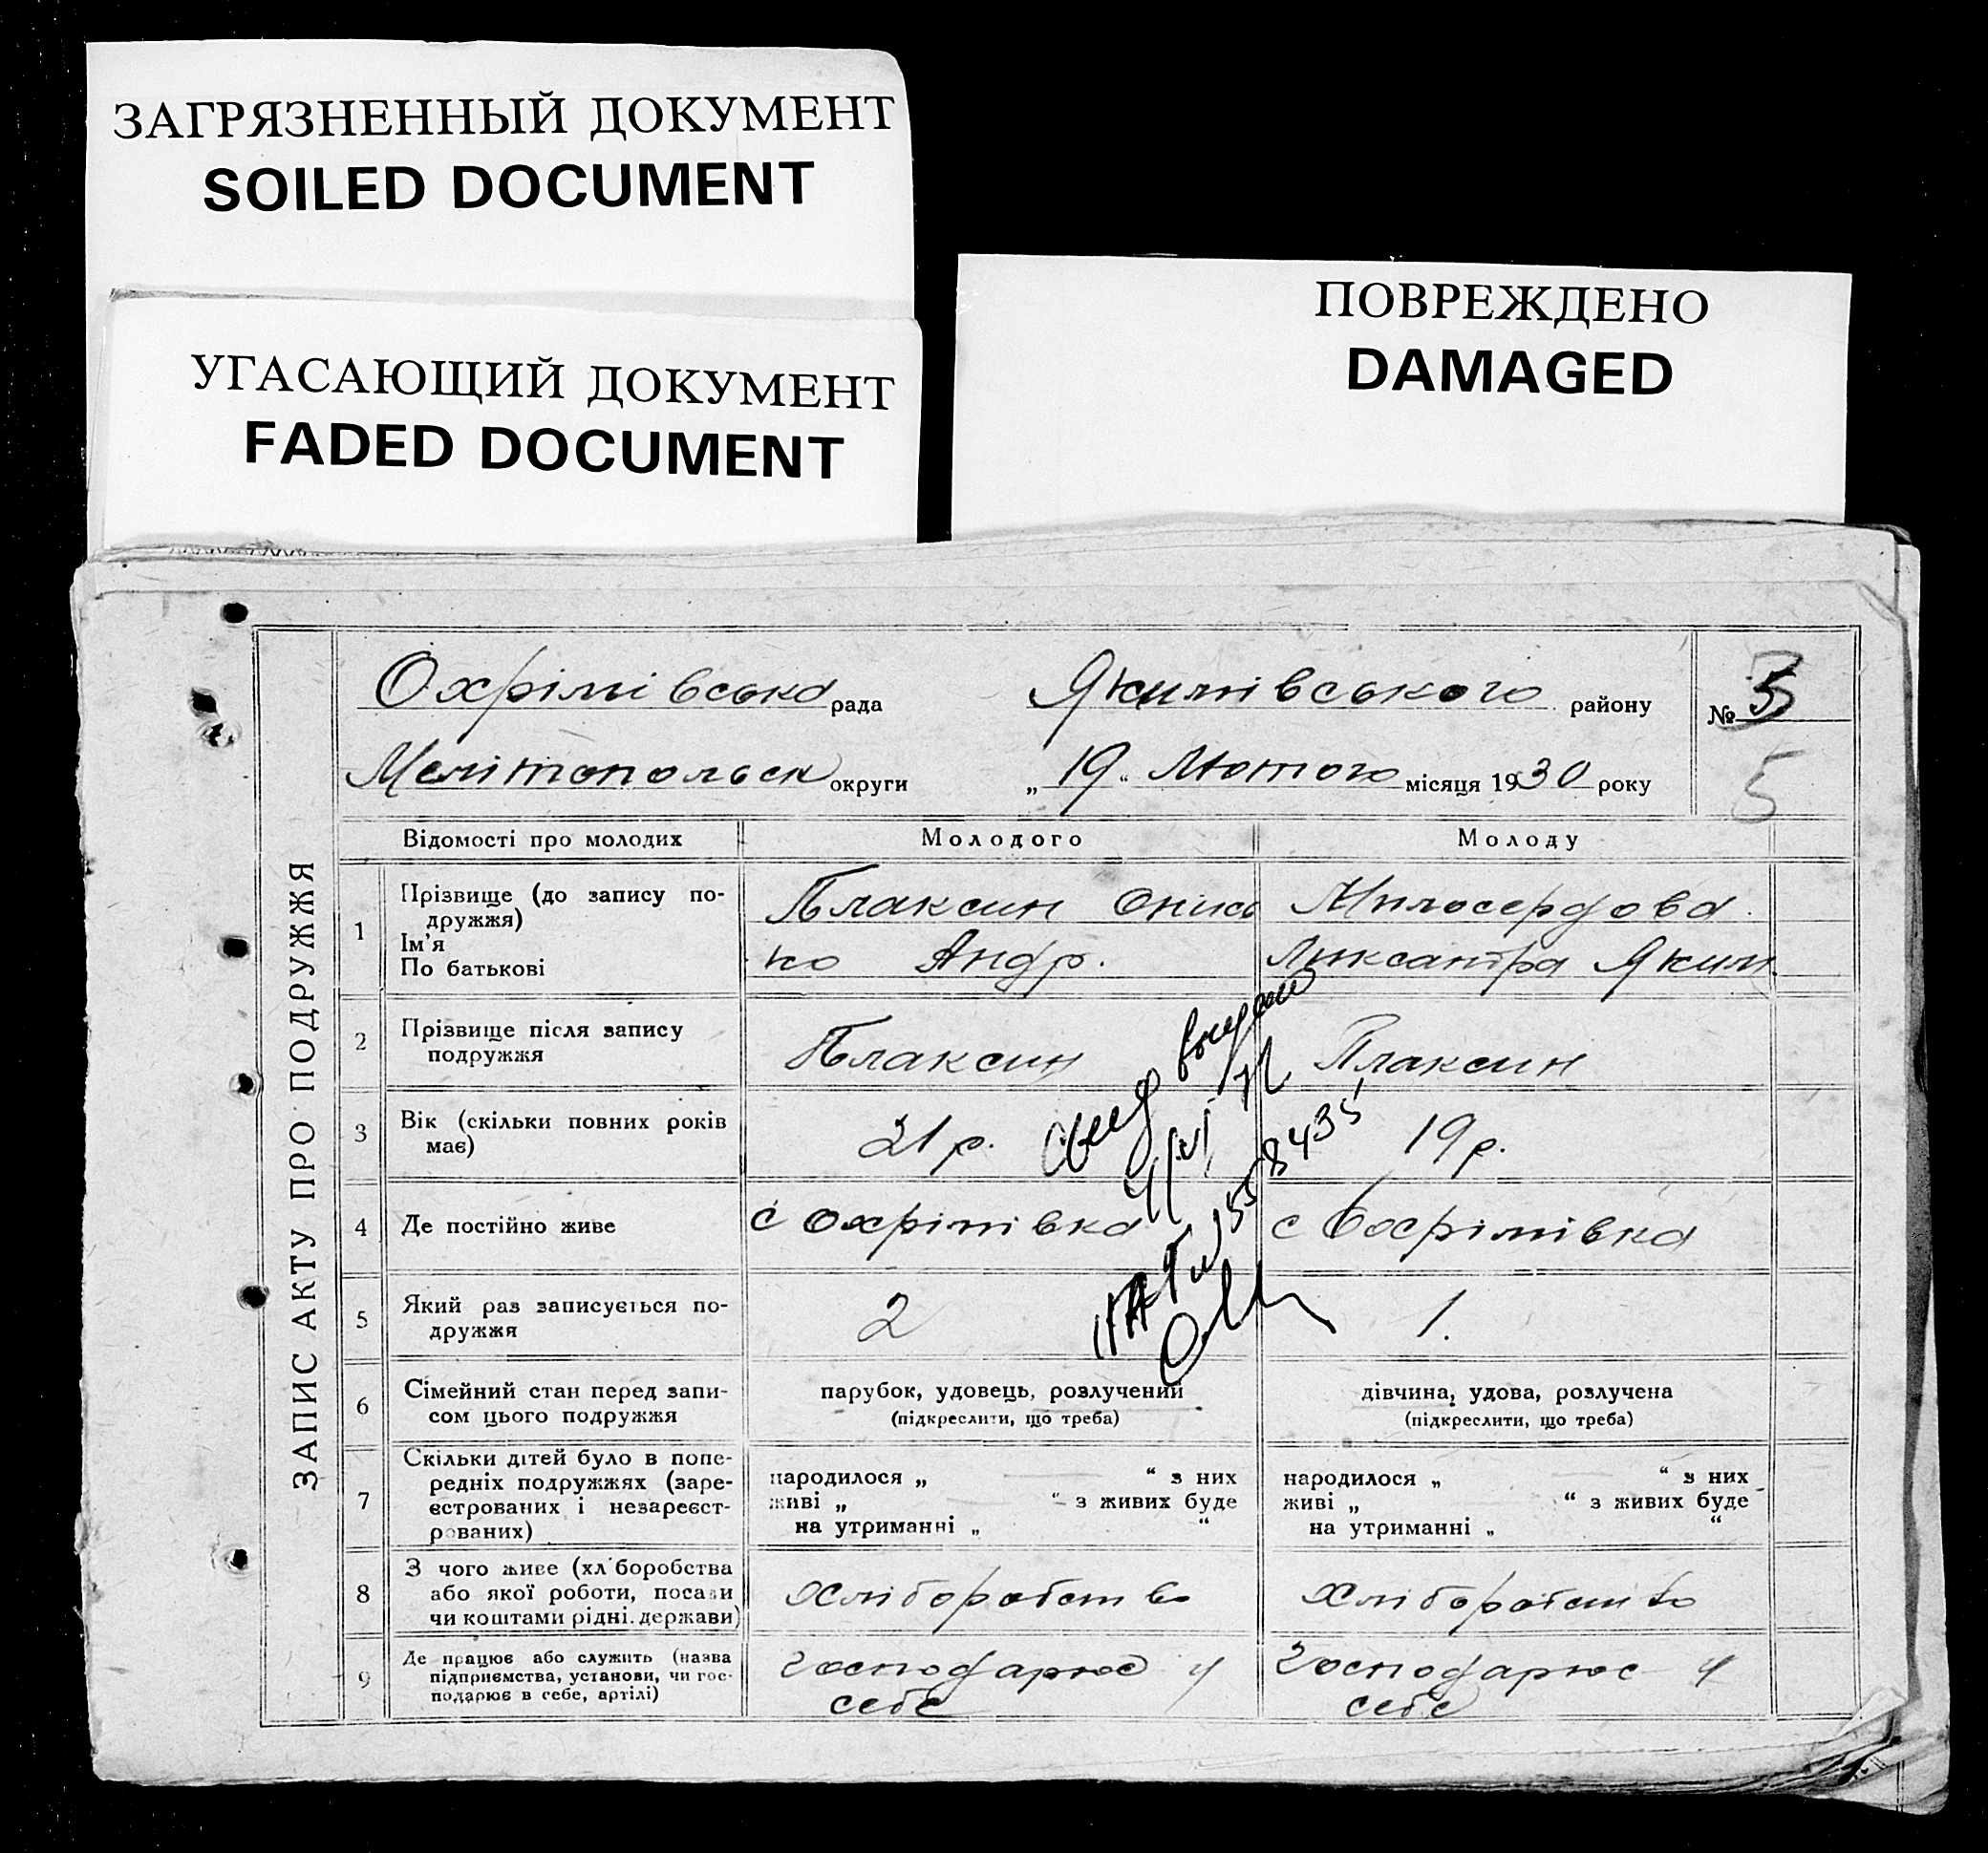 ЗАГРЯЗНЕННЫЙ ДОКУМЕНТ
SOILED DOCUMENT
УГАСАЮЩИЙ ДОКУМЕНТ
FADED DOCUMENT
ПОВРЕЖДЕНО
DAMAGED
ЗАПИС АКТУ ПРО ПОДРУЖЖЯ
Охрімівська рада Якимівського району № 5
Мелітопольск округи „19“ Лютого місяця 1930 року
5
Відомості про молодих Молодого Молоду
1 Прізвище (до запису по-
дружжя)
Ім'я
По батькові
Плаксин Онись
ко Андр.
Милосердова
Ликсантра Яким.
2 Прізвище після запису
подружжя
Плаксин Плаксин
3 Вік (скільки повних років
має)
21 р. 19 р.
4 Де постійно живе
с Охрімівка с Охрімівка
5 Який раз записується по-
дружжя
2 1.
6 Сімейний стан перед запи-
сом цього подружжя
парубок, удовець, розлучений
(підкреслити, що треба)
дівчина, удова, розлучена
(підкреслити, що треба)
7 Скільки дітей було в попе-
редніх подружжях (заре-
єстрованих і незареєст-
рованих)
народилося „ “ з них
живі „ “ з живих буде
на утриманні „ “
народилося „ “ з них
живі „ “ з живих буде
на утриманні „ “
8 З чого живе (хліборобства
або якої роботи, посади
чи коштами рідні. держави)
Хліборобств
Хліборобство
9 Де працює або служить (назва
підприємства, установи, чи гос-
подарює в себе, артілі)
Господарює у
себе
Господарює у
себе
Свид выдано
558435